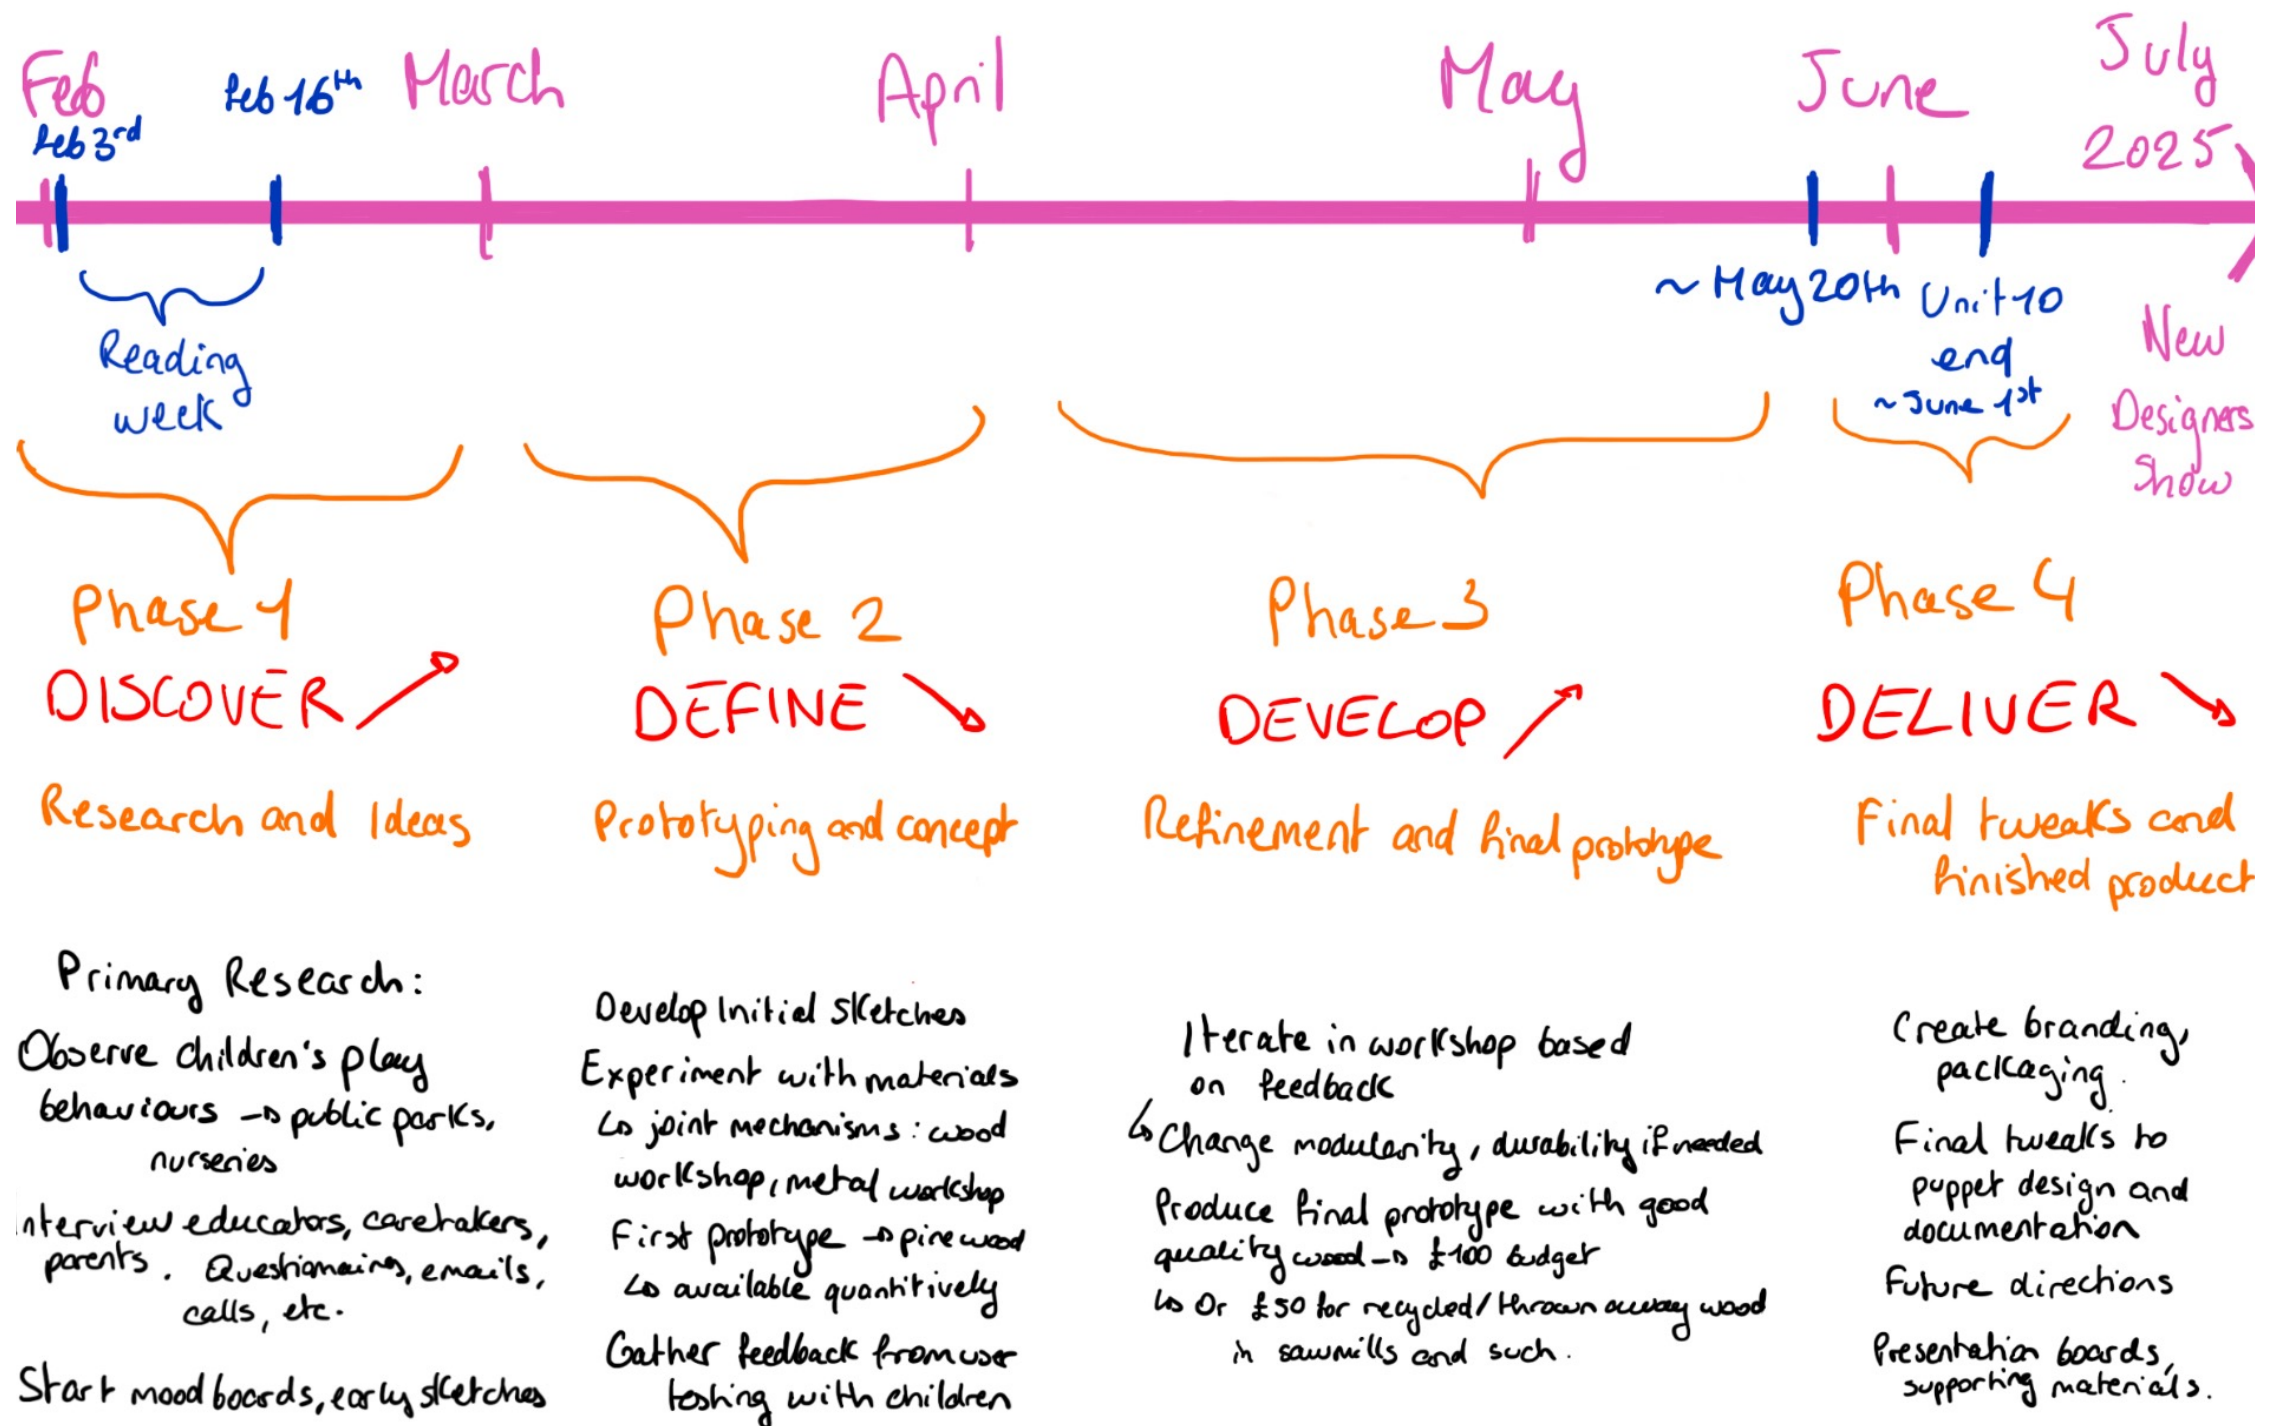 Feb
feb 3rd
feb 16th
March
April
May
June
July
2025
Reading
week
~ May 20th
Unit 10
end
~ June 1st
New
Designers
Show
Phase 1
DISCOVER
Research and Ideas
Primary Research:
Observe children's play
behaviours → public parks,
nurseries
nterview educators, caretakers,
parents. Questionnaires, emails,
calls, etc.
Start mood boards, early sketches
Phase 2
DEFINE
Prototyping and concept
Develop Initial Sketches
Experiment with materials
↳ joint mechanisms: wood
workshop, metal workshop
First prototype → pine wood
↳ available quantitively
Gather feedback from user
testing with children
Phase 3
DEVELOP
Refinement and final prototype
Iterate in workshop based
on feedback
↳ Change modularity, durability if needed
Produce final prototype with good
quality wood → £100 budget
↳ Or £50 for recycled/thrown away wood
in sawmills and such.
Phase 4
DELIVER
Final tweaks and
finished product
Create branding,
packaging.
Final tweaks to
puppet design and
documentation
Future directions
Presentation boards,
supporting materials.